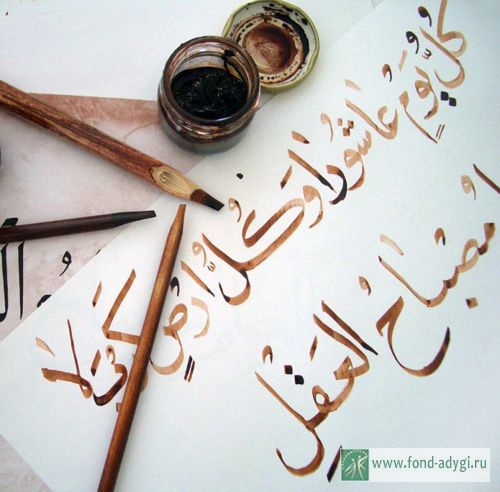 كُلُّ يَوْمٍ عَاشُورَا وَكُلُّ أَرْضٍ كَرْبَلَا
مصْبَاحُ العَقْلِ
www.fond-adygi.ru